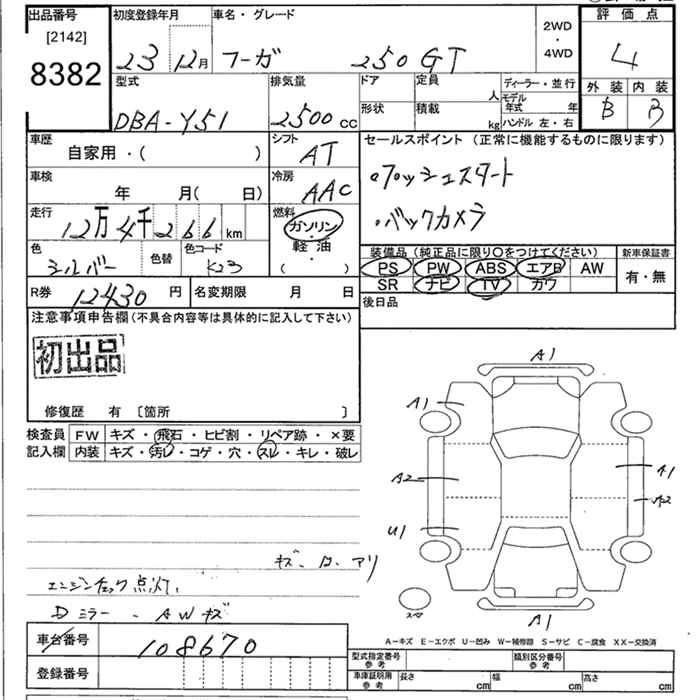 出品番号
[2142]
8382
初度登録年月
23 12月
車名・グレード
フーガ 250 GT
2WD
・
4WD
評価点
4
外装 内装
B B
型式
DBA-Y51
排気量
2500 CC
ドア
形状
定員 人
積載 kg
ディーラー・並行
モデル年式 年
ハンドル 左・右
車歴
自家用・( )
シフト
AT
セールスポイント (正常に機能するものに限ります)
・プッシュスタート
・バックカメラ
車検
年 月( 日)
冷房
AAC
走行
12万4千266 km
燃料
ガソリン・
軽油・
( )
色
シルバー
色替
色コード
K23
装備品 (純正品に限り〇をつけてください)
PS PW ABS エアB AW
SR ナビ TV カワ
新車保証書
有・無
R券 12430 円
名変期限 月 日
後日品
注意事項申告欄(不具合内容等は具体的に記入して下さい)
初出品
修復歴 有 〔箇所 〕
検査員
記入欄
FW キズ・飛石・ヒビ割・リペア跡・×要
内装 キズ・汚レ・コゲ・穴・スレ・キレ・破レ
A1
A1
A2
U1
A1
A2
A1
スペア
キズ、 アリ
エンジンチェック点灯
Dミラー、AWキズ
A-キズ E-エクボ U-凹み W-補修跡 S-サビ C-腐食 XX-交換済
車台番号 108670
登録番号
型式指定番号
参考
類別区分番号
参考
車庫証明用
参考
長さ cm 幅 cm 高さ cm